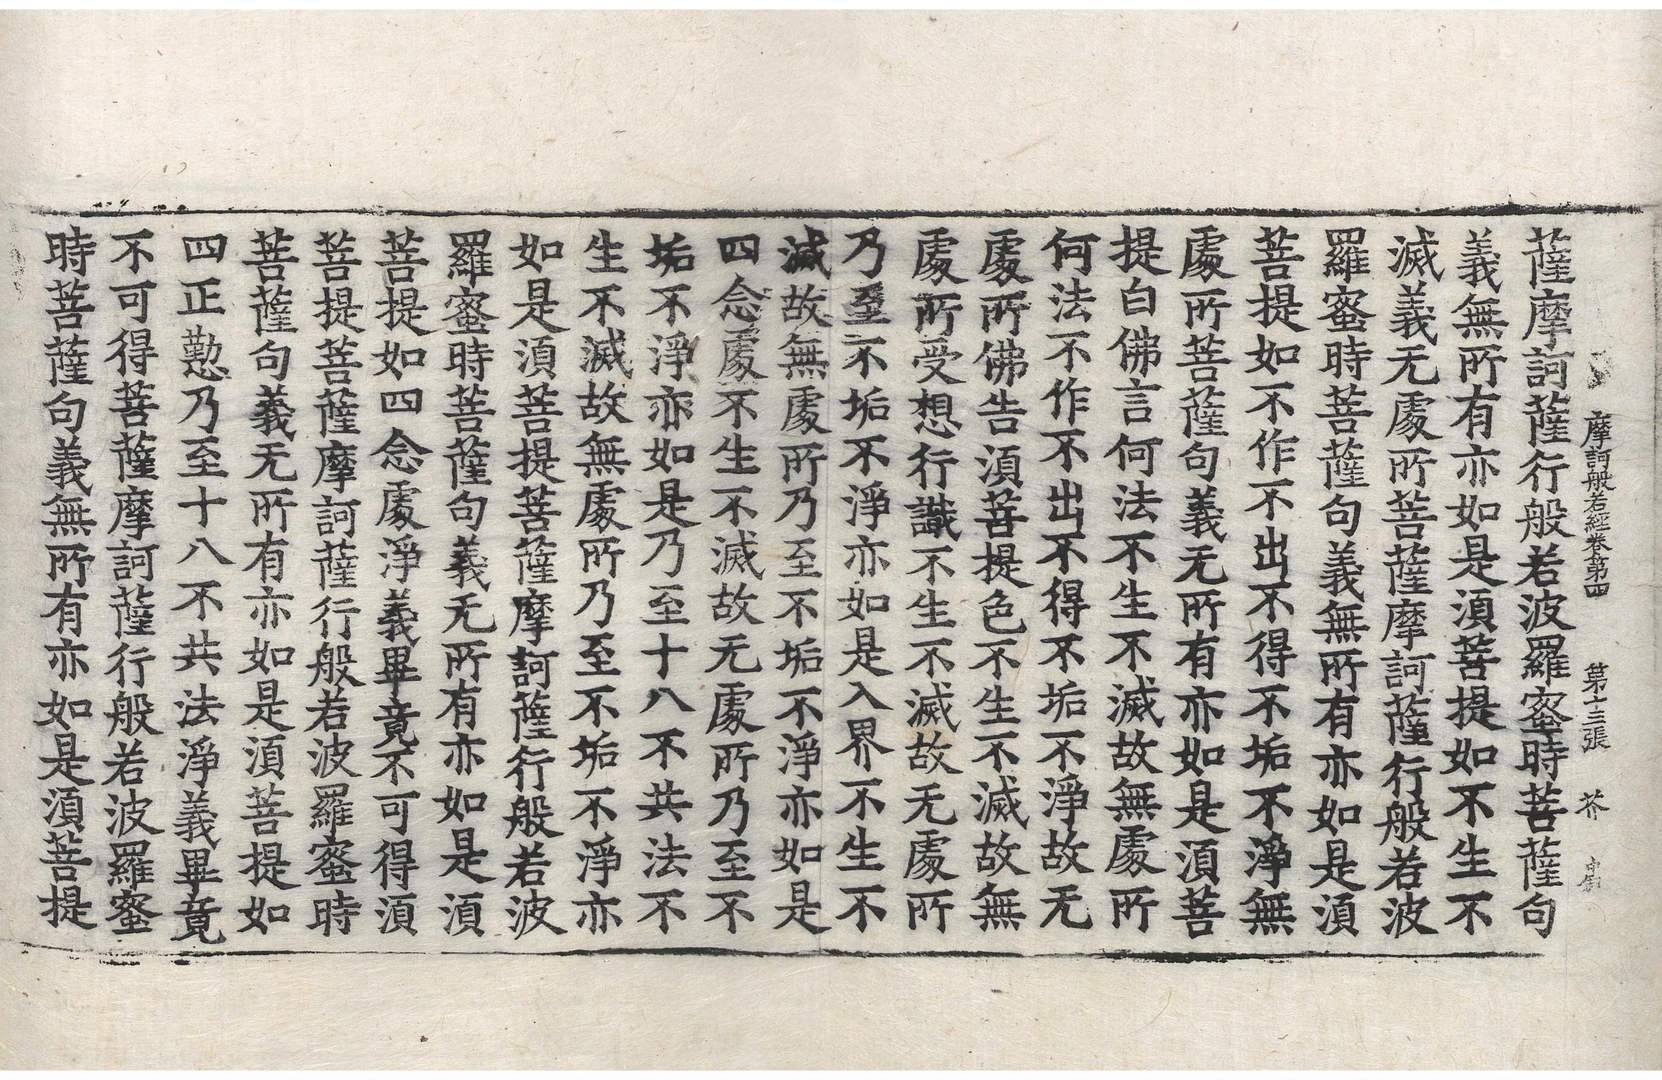 摩訶般若經卷第四 第十三張 芥
薩摩訶薩行般若波羅蜜時菩薩句
義無所有亦如是須菩提如不生不
滅義无處所菩薩摩訶薩行般若波
羅蜜時菩薩句義無所有亦如是須
菩提如不作不出不得不垢不淨無
處所菩薩句義无所有亦如是須菩
提白佛言何法不生不滅故無處所
何法不作不出不得不垢不淨故无
處所佛告須菩提色不生不滅故無
處所受想行識不生不滅故无處所
乃至不垢不淨亦如是入界不生不
滅故無處所乃至不垢不淨亦如是
四念處不生不滅故无處所乃至不
垢不淨亦如是乃至十八不共法不
生不滅故無處所乃至不垢不淨亦
如是須菩提菩薩摩訶薩行般若波
羅蜜時菩薩句義无所有亦如是須
菩提如四念處淨義畢竟不可得須
菩提菩薩摩訶薩行般若波羅蜜時
菩薩句義无所有亦如是須菩提如
四正懃乃至十八不共法淨義畢竟
不可得菩薩摩訶薩行般若波羅蜜
時菩薩句義無所有亦如是須菩提